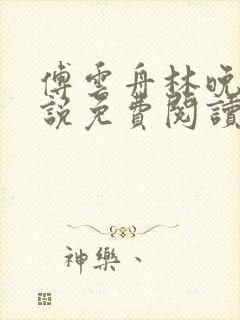 傅雲舟林晚
說免費閱讀
神樂、